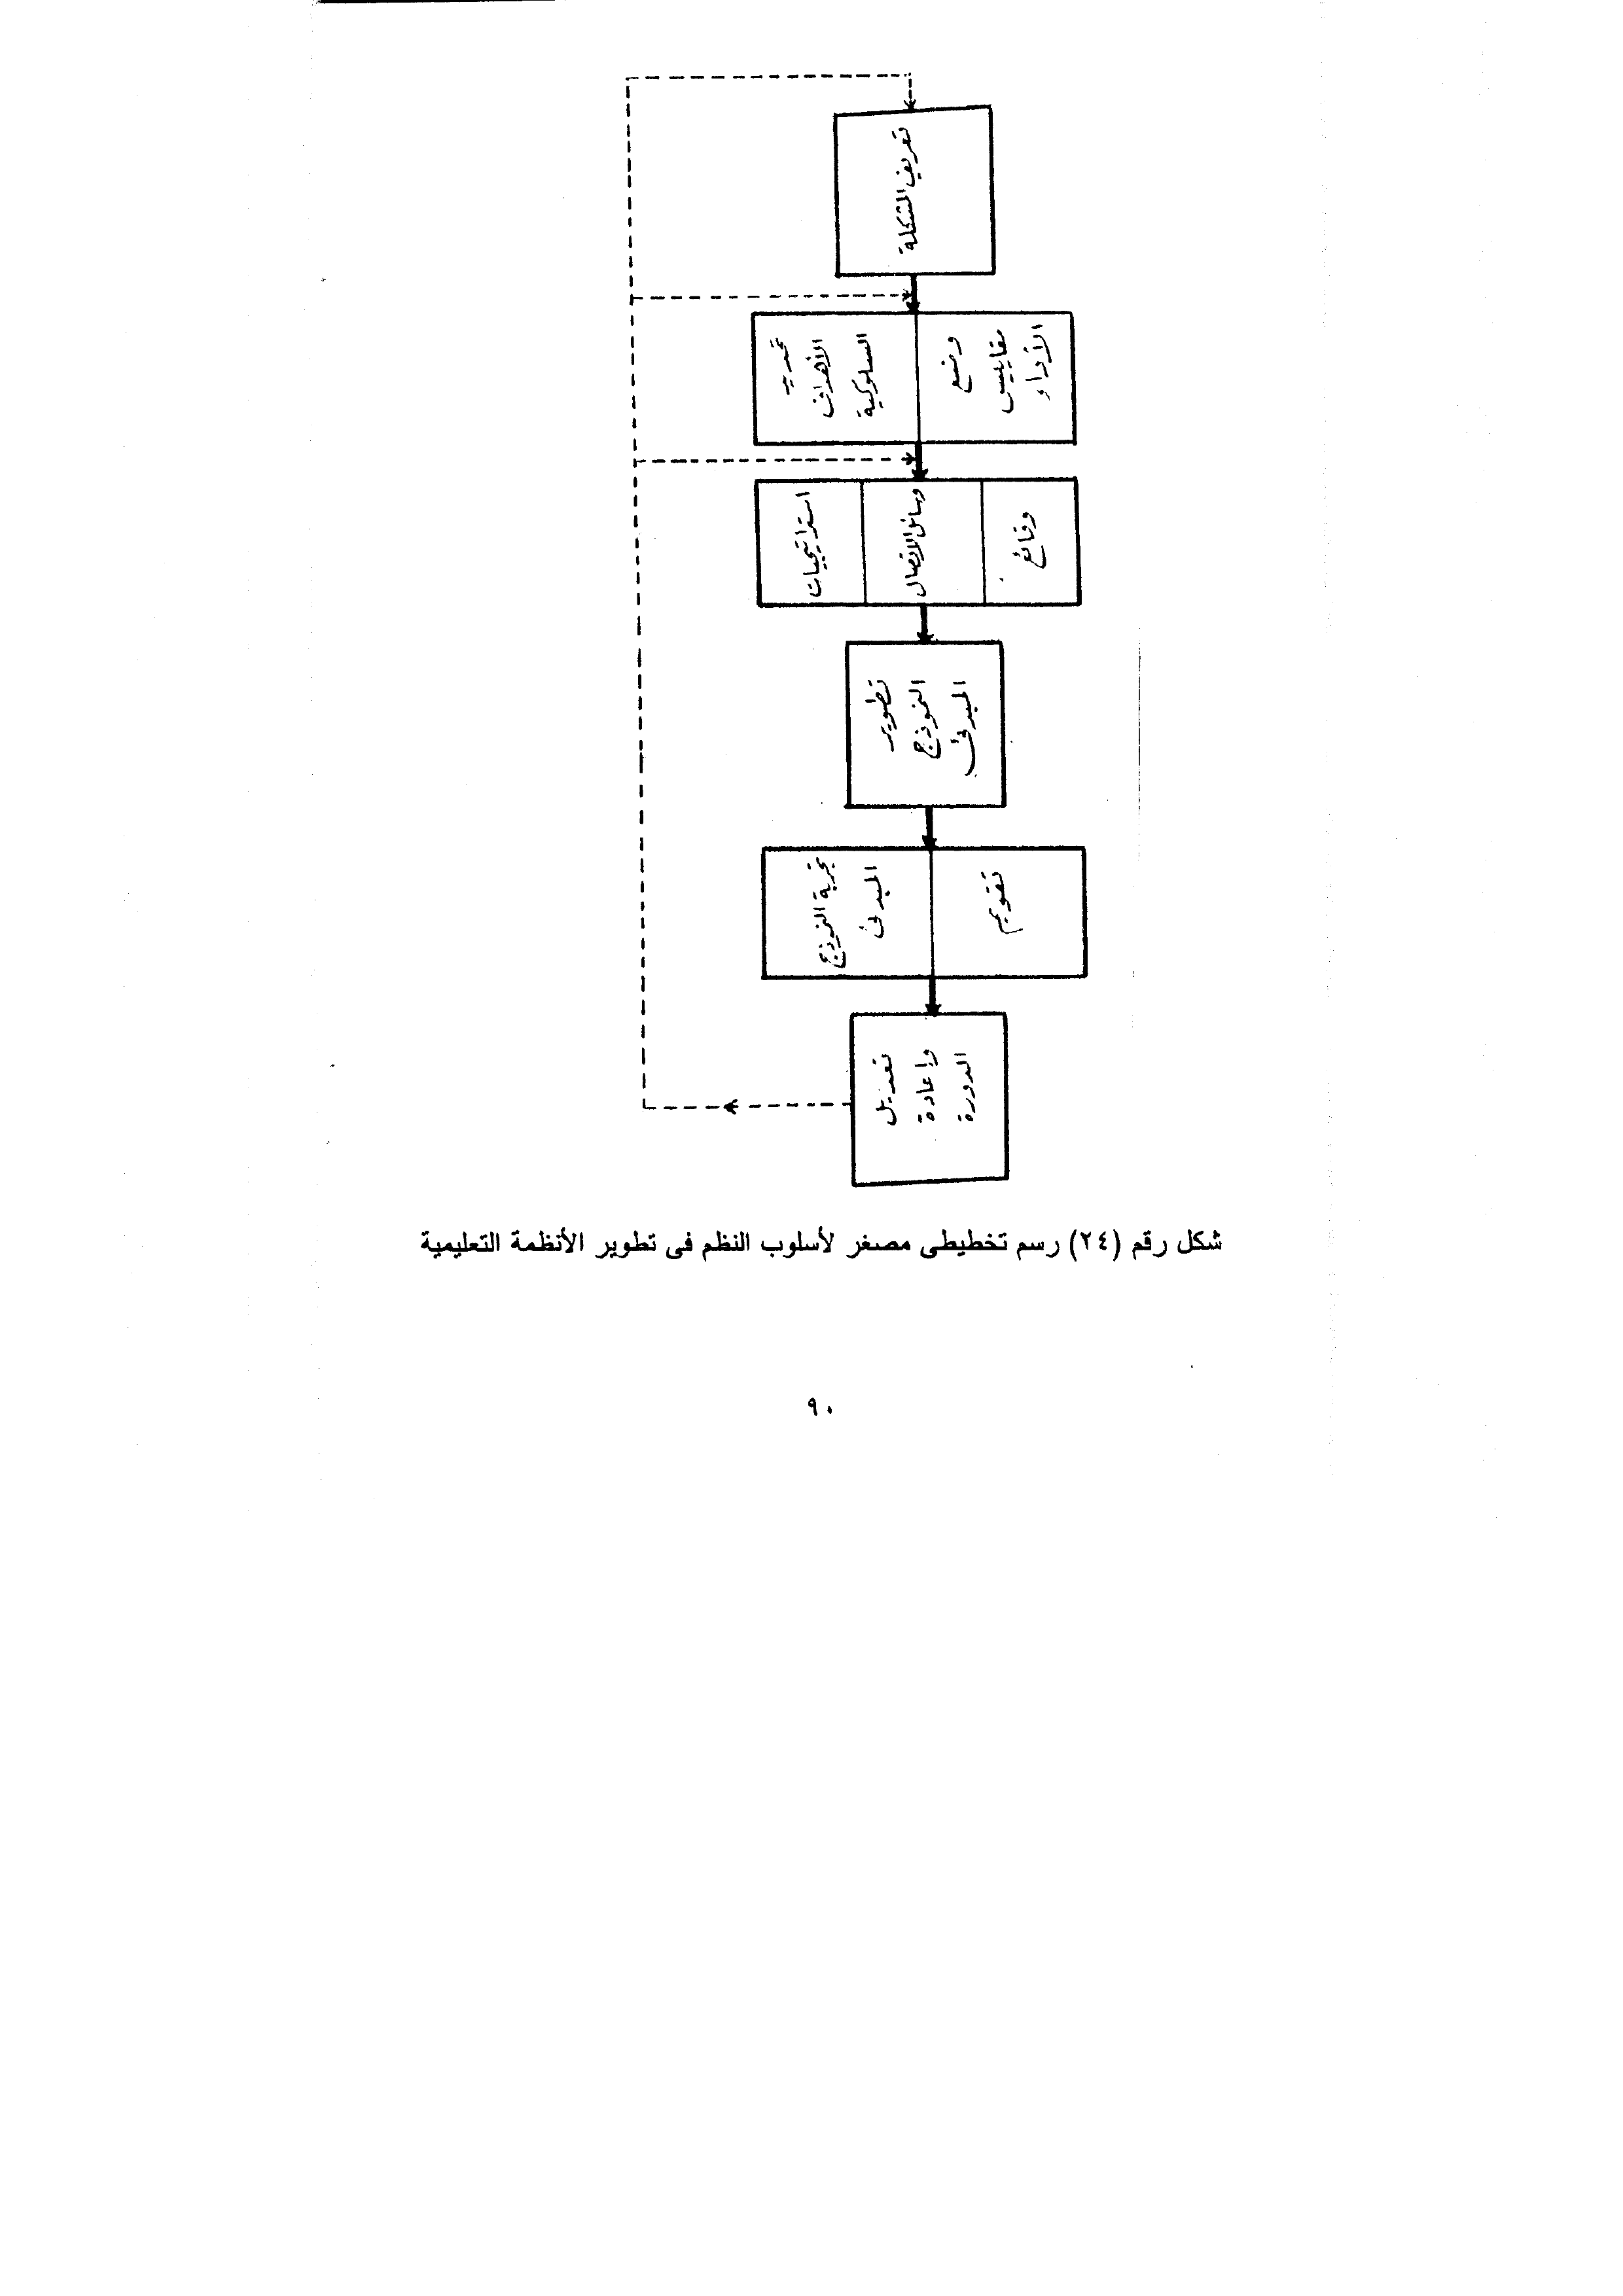 تعريف المشكلة
تحديد
الأهداف
السلوكية
وضع
مقاييس
الأداء
استراتيجيات
وسائل الاتصال
وقائع
تطوير
النموذج
المبدئى
تجربة النموذج
المبدئى
تقويم
تعديل
وإعادة
الدورة
شكل رقم (٢٤) رسم تخطيطى مصغر لأسلوب النظم فى تطوير الأنظمة التعليمية
٩٠